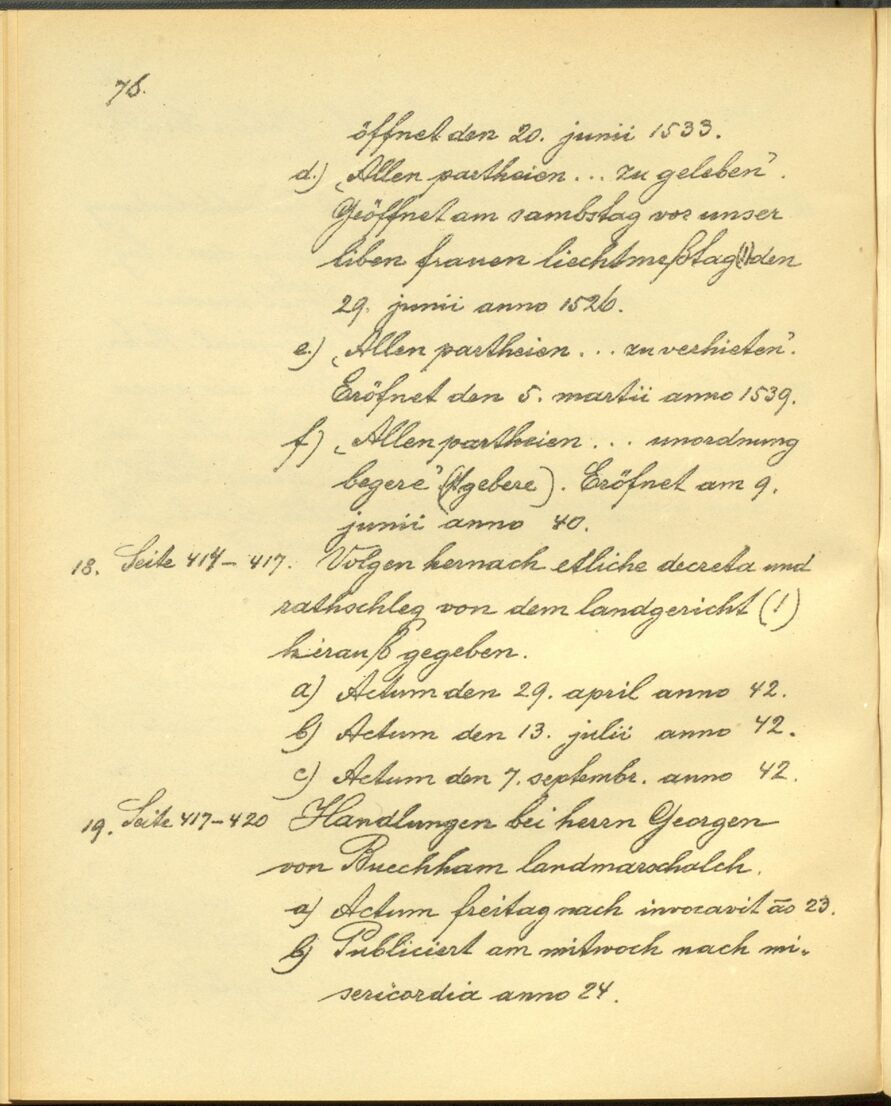 76.
öffnet den 20. junii 1533.
d.) „Allen partheien ... zu geleben”.
Geöffnet am sambstag vor unser
liben frauen liechtmeßtag (!) den
29. junii anno 1526.
e.) „Allen partheien ... zu verhieten”.
Eröfnet den 5. martii anno 1539.
f) „Allen partheien ... unordnung
begere” (!gebere). Eröfnet am 9.
junii anno 40.
18. Seite 414–417. Volgen hernach etliche decreta und
rathschleg von dem landgericht (!)
hierauß gegeben.
a) Actum den 29. april anno 42.
b) Actum den 13. julii anno 42.
c) Actum den 7. septembr. anno 42.
19. Seite 417–420 Handlungen bei herrn Georgen
von Buechham landmarschalch.
a) Actum freitag nach invocavit āo 23.
b) Publiciert am mitwoch nach mi-
sericordia anno 24.